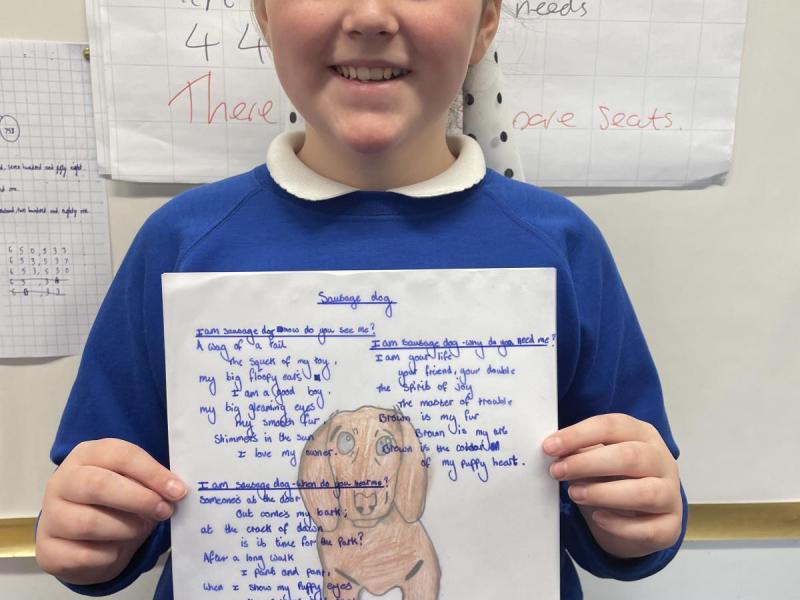 needs
4 4
There
are Seats.
758
seven hundred and fifty eight
two hundred and eighty one
6 5 0, 5 3 3
6 5 3, 5 3
6 5 3, 5 3 0
Sausage dog
I am sausage dog how do you see me?
A wag of a tail
The squek of my toy,
my big floopy ears
I am a good boy.
my big gleaming eyes
my smooth fur,
Shimmers in the sun
I love my owner.
I am sausage dog - when do you hear me?
Someone's at the door
But comes my bark;
at the crack of dawn
is it time for the park?
After a long walk
I pant and pant,
when I show my puppy eyes
I am sausage dog - why do you need me?
I am your life
your friend, your double
the Spirit of joy
The master of trouble
Brown is my fur
Brown is my
Brown is the
of my puppy heart.